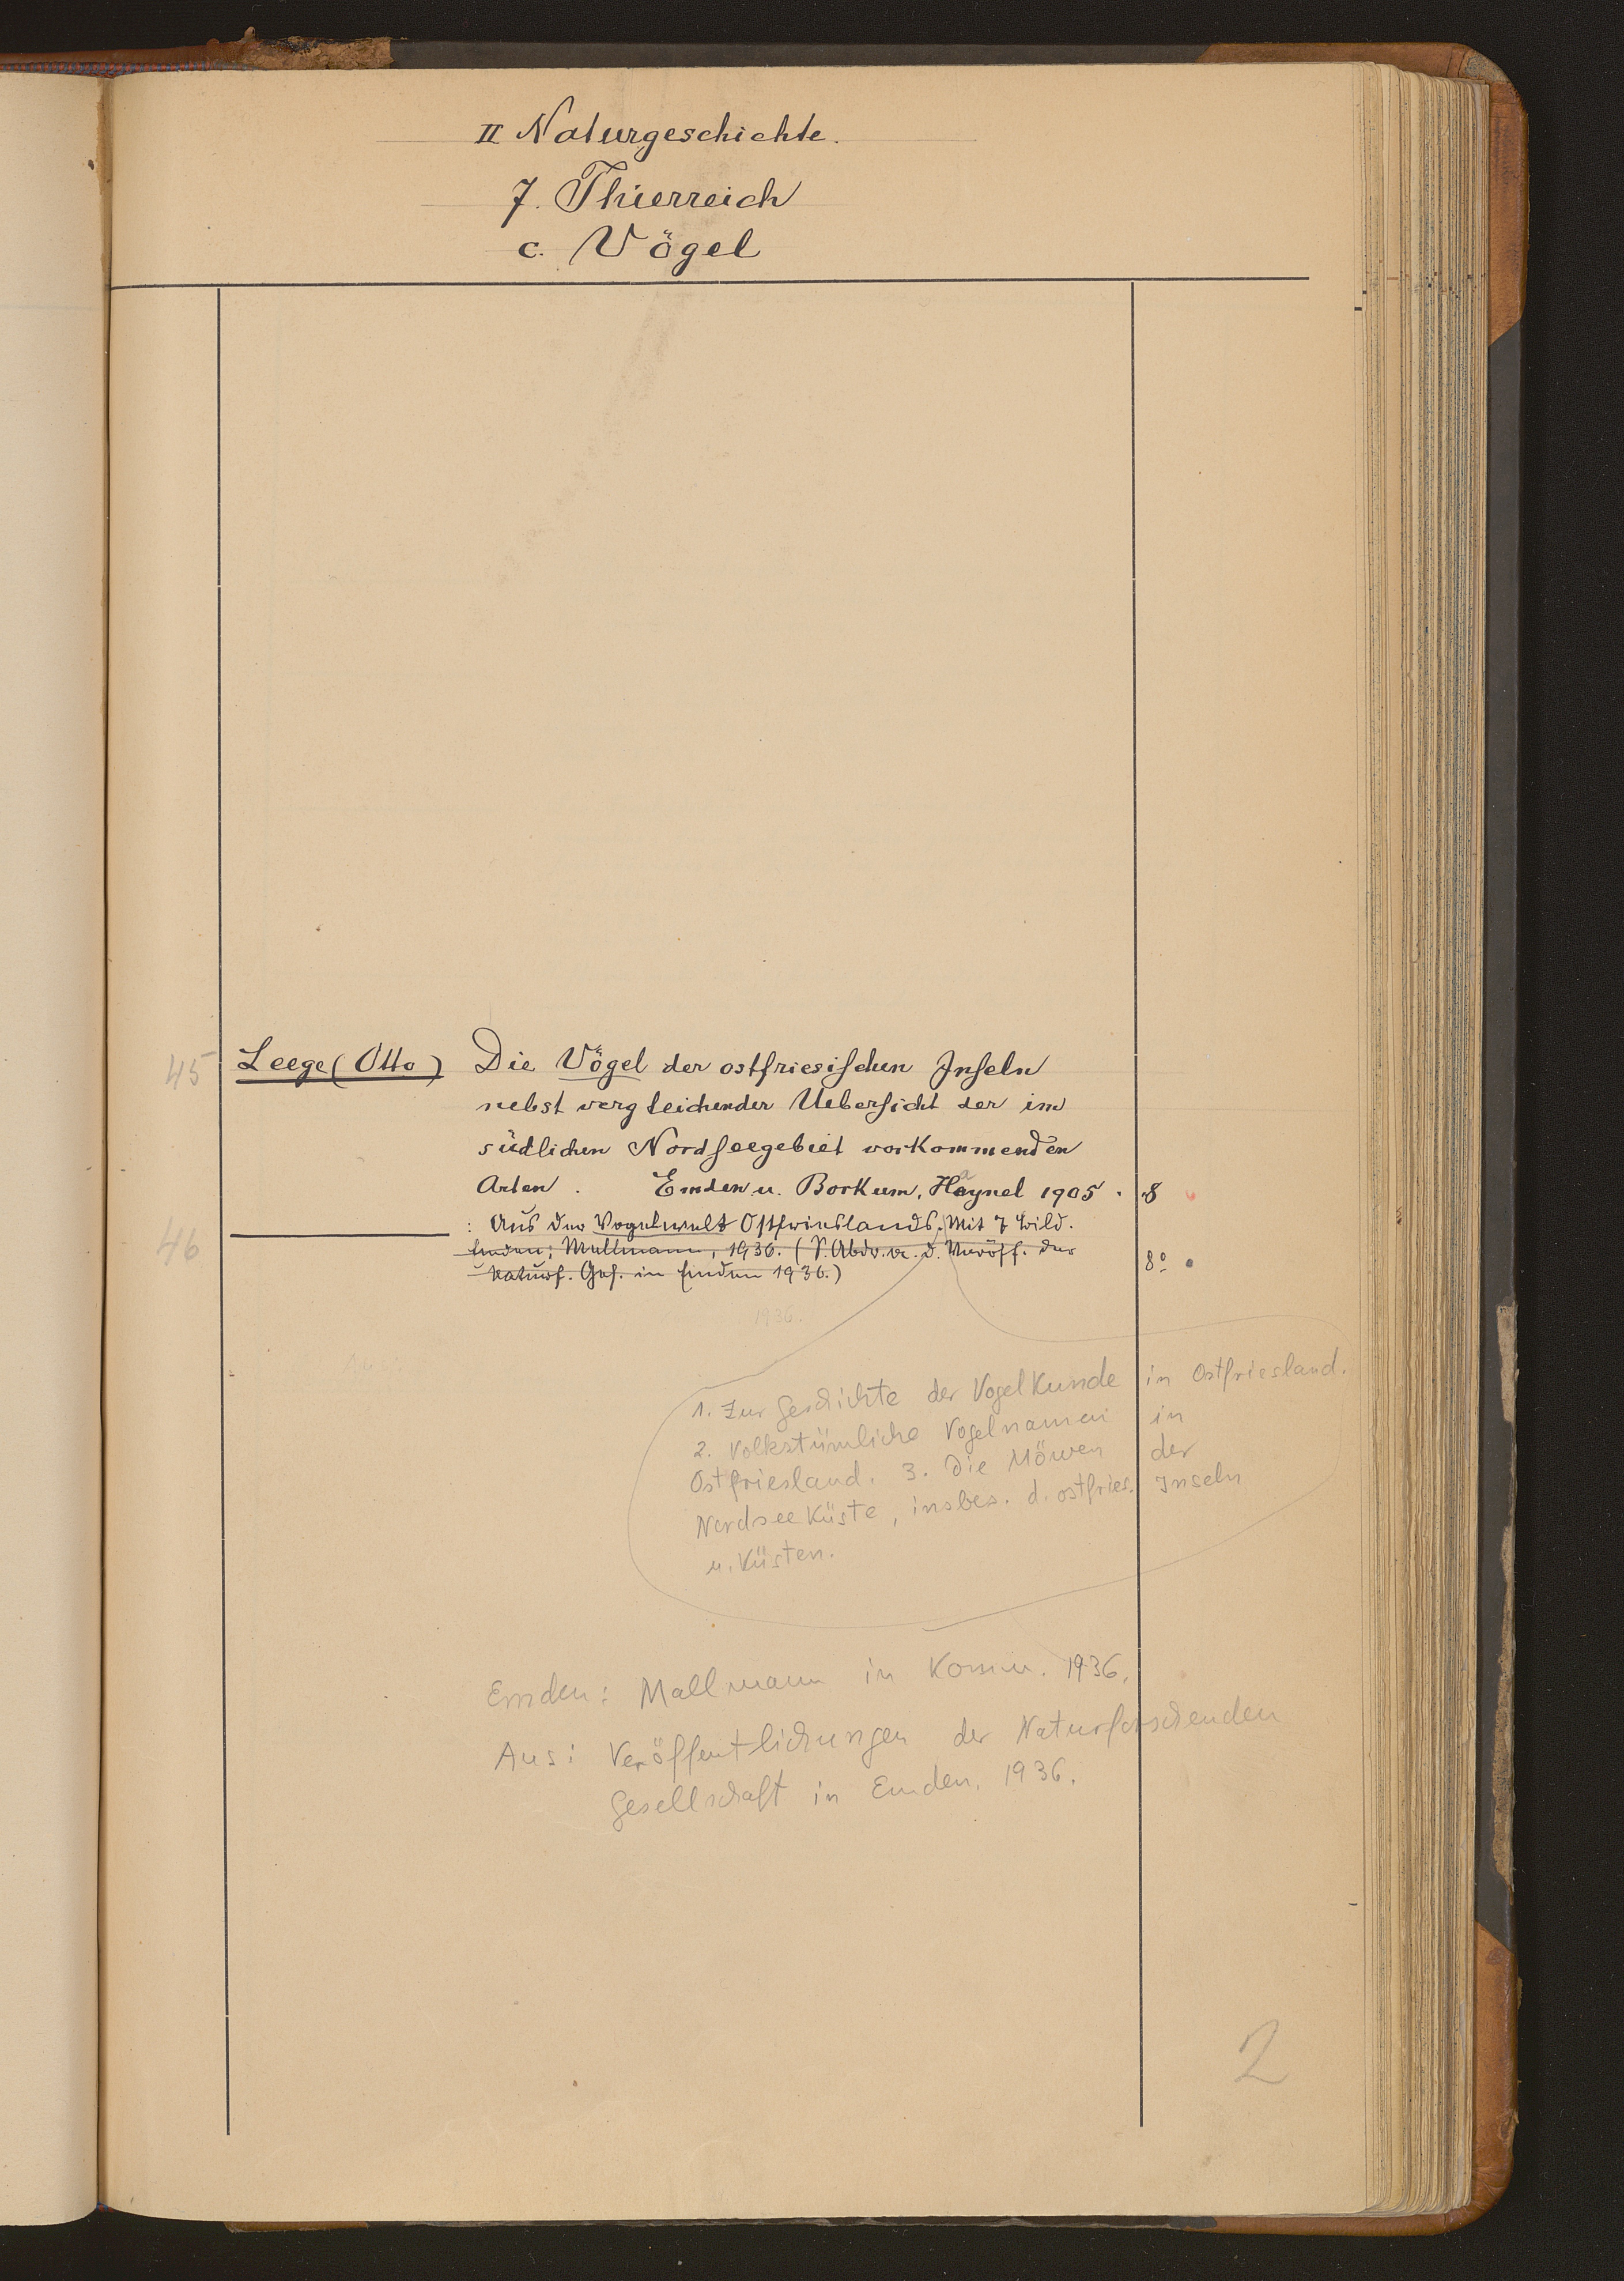 II Naturgeschichte.
7. Thierreich
c. Vögel
45 Leege (Otto) Die Vögel der ostfriesischen Inseln
nebst vergleichender Uebersicht der im
südlichen Nordseegebiet vorkommenden
Arten. Emden u. Borkum, Haynel 1905. 8
46 : Aus der Vogelwelt Ostfrieslands. Mit 7 Bild.
Emden: Mallmann, 1936. (S. Abdr. a. d. Veröff. der
Naturf. Ges. in Emden 1936.) 8º
1936.
1. Zur Geschichte der Vogelkunde in Ostfriesland.
2. Volkstümliche Vogelnamen in
Ostfriesland. 3. Die Möwen der
Nordseeküste, insbes. d. ostfries. Inseln
u. Küsten.
Emden: Mallmann in Komm. 1936.
Aus: Veröffentlichungen der Naturforschenden
Gesellschaft in Emden. 1936.
2